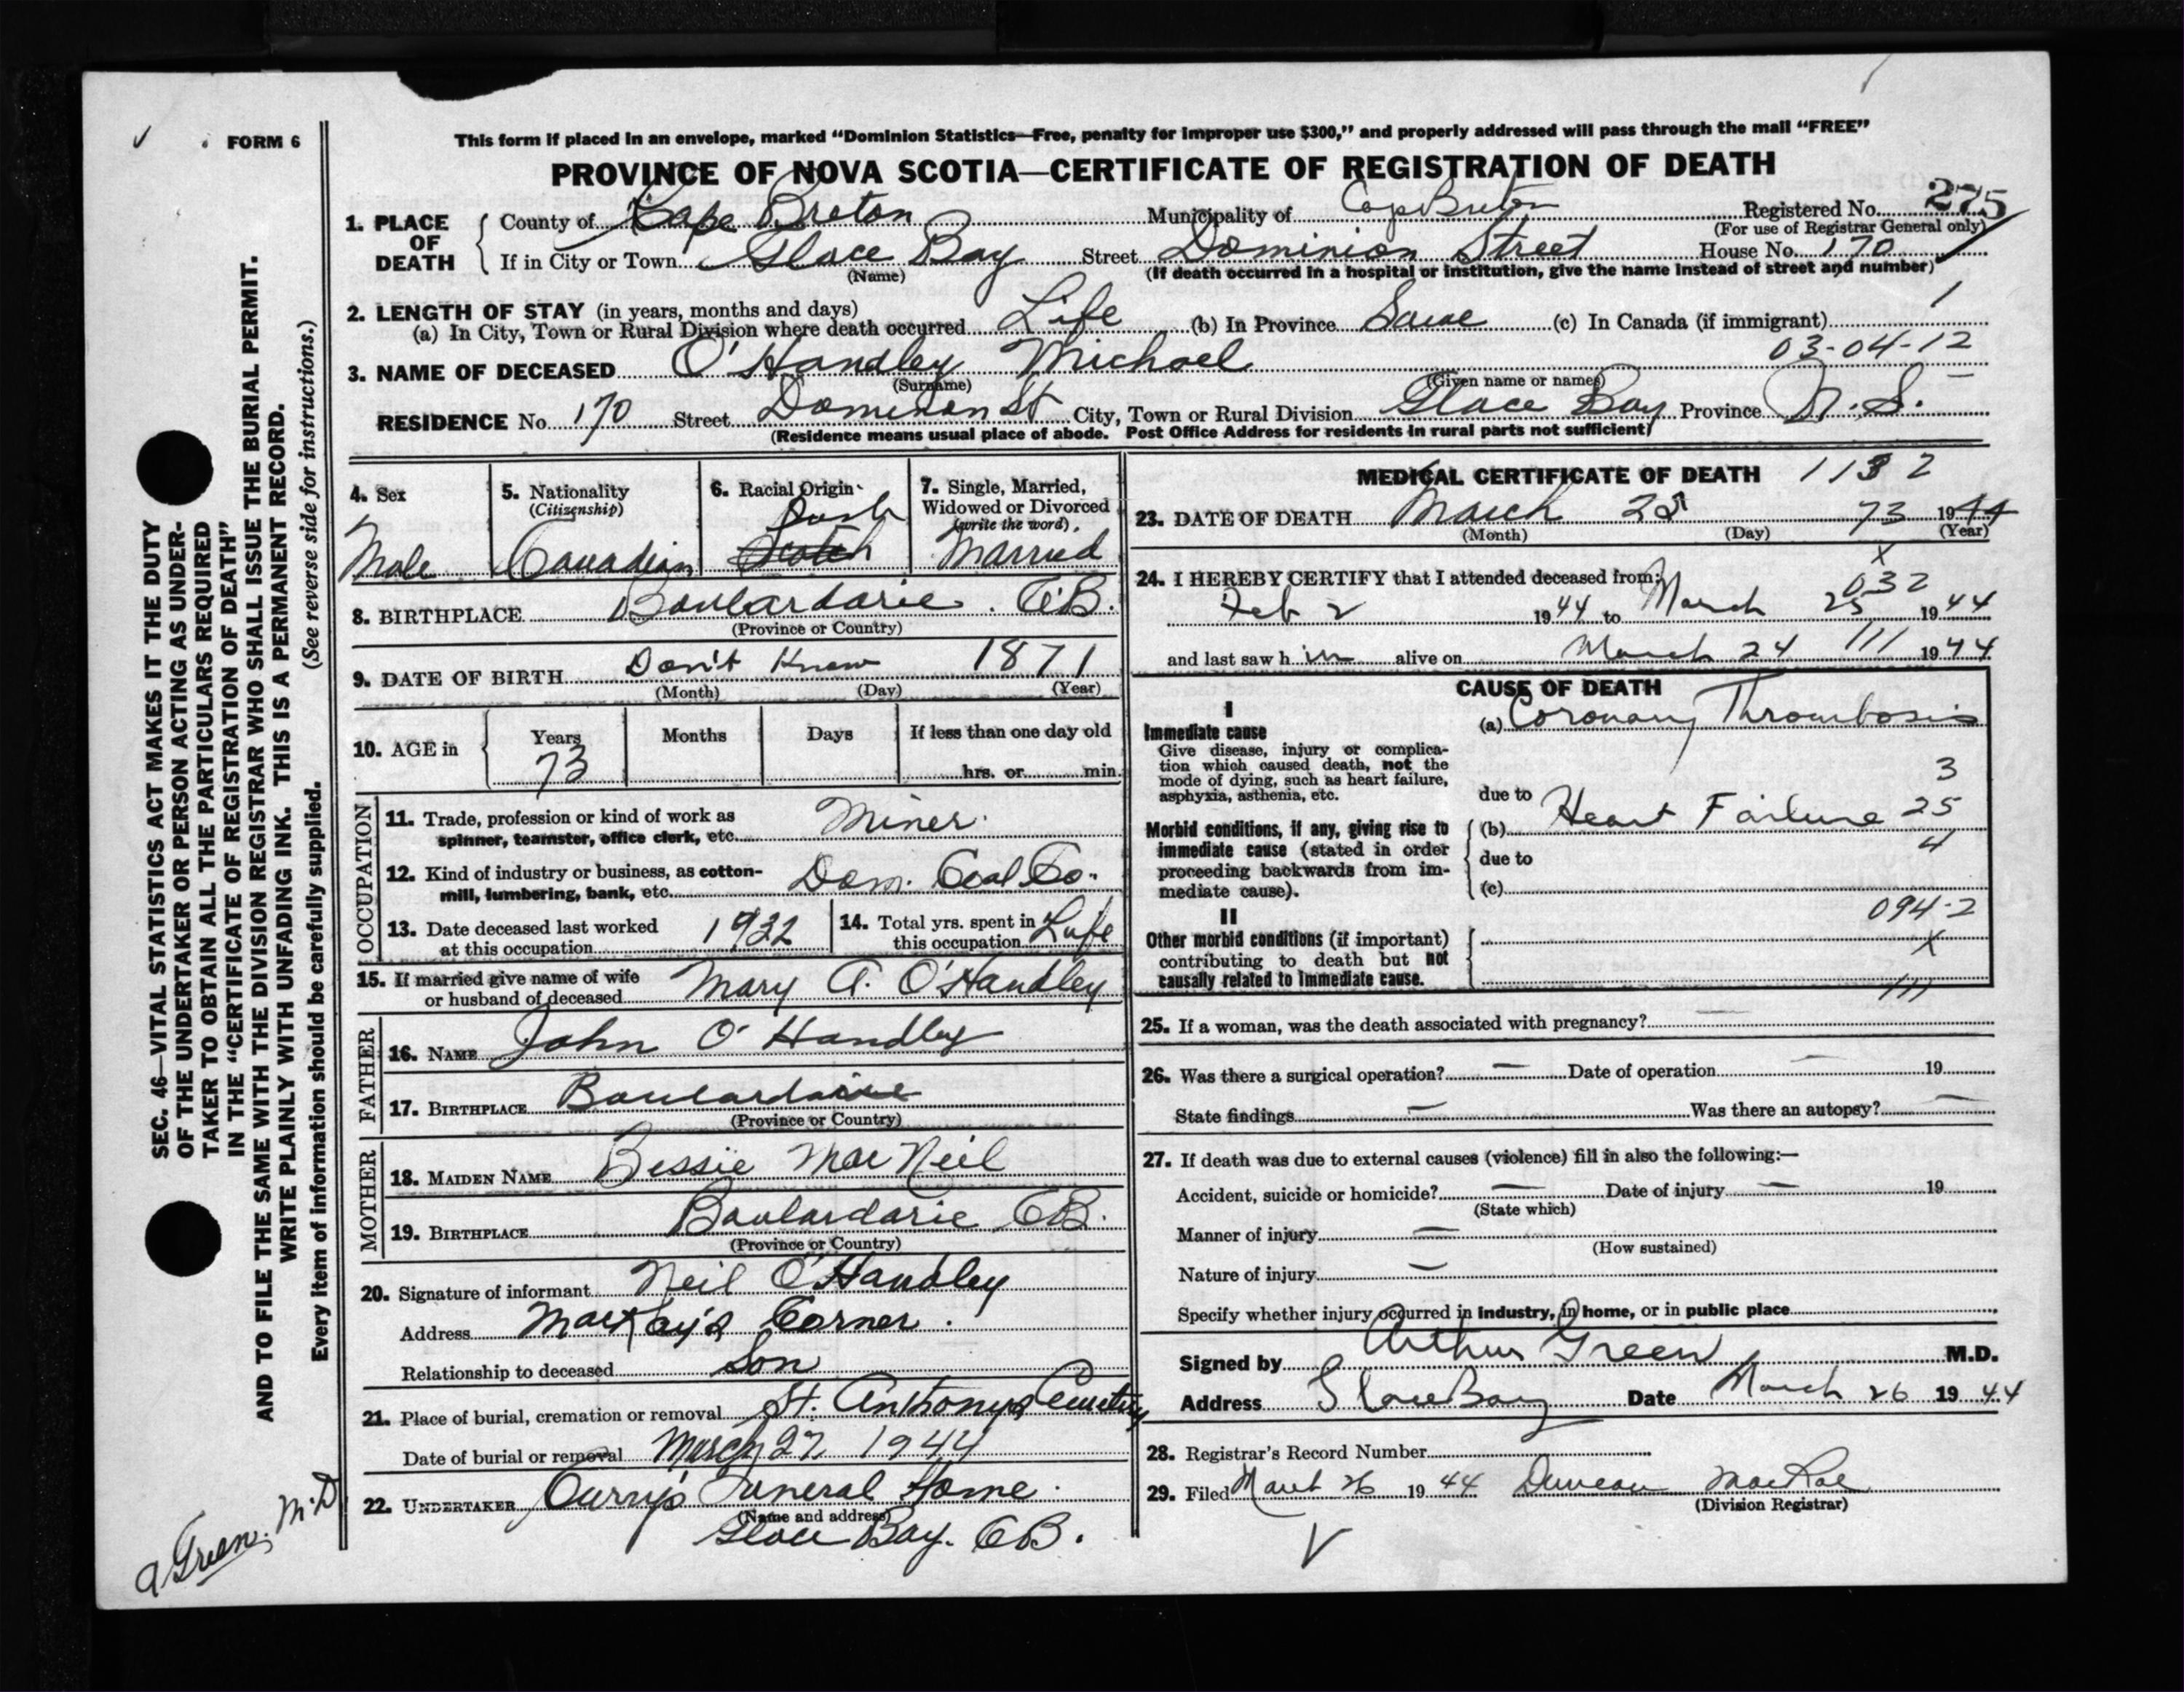 FORM 6
This form if placed in an envelope, marked "Dominion Statistics—Free, penalty for improper use $300," and properly addressed will pass through the mail "FREE"
PROVINCE OF NOVA SCOTIA—CERTIFICATE OF REGISTRATION OF DEATH
1. PLACE OF DEATH County of Cape Breton Municipality of Cape Breton Registered No. 275
(For use of Registrar General only)
If in City or Town Glace Bay Street Dominion Street House No. 170
(Name) (If death occurred in a hospital or institution, give the name instead of street and number)
2. LENGTH OF STAY (in years, months and days) 1
(a) In City, Town or Rural Division where death occurred Life (b) In Province Same (c) In Canada (if immigrant)
03-04-12
3. NAME OF DECEASED O'Handley Michael
(Surname) (Given name or names)
RESIDENCE No. 170 Street Dominion St City, Town or Rural Division Glace Bay Province N.S.
(Residence means usual place of abode. Post Office Address for residents in rural parts not sufficient)
4. Sex Male
5. Nationality (Citizenship) Canadian
6. Racial Origin Scotch
7. Single, Married, Widowed or Divorced (write the word) Married
8. BIRTHPLACE Boulardarie. C.B.
(Province or Country)
9. DATE OF BIRTH Don't Know 1871
(Month) (Day) (Year)
10. AGE in Years Months Days If less than one day old
73 hrs. or min.
OCCUPATION
11. Trade, profession or kind of work as
spinner, teamster, office clerk, etc. Miner.
12. Kind of industry or business, as cotton-
mill, lumbering, bank, etc. Dom. Coal Co.
13. Date deceased last worked
at this occupation 1932
14. Total yrs. spent in
this occupation Life
15. If married give name of wife
or husband of deceased Mary A. O'Handley
FATHER
16. NAME John O'Handley
17. BIRTHPLACE Boulardarie
(Province or Country)
MOTHER
18. MAIDEN NAME Bessie MacNeil
19. BIRTHPLACE Boulardarie CB.
(Province or Country)
20. Signature of informant Neil O'Handley
Address MacKay's Corner.
Relationship to deceased Son
21. Place of burial, cremation or removal St. Anthony's Cemetery
Date of burial or removal March 27, 1944
22. UNDERTAKER Curry's Funeral Home.
(Name and address)
Glace Bay. CB.
MEDICAL CERTIFICATE OF DEATH 1132
23. DATE OF DEATH March 25 73 1944
(Month) (Day) (Year)
X
24. I HEREBY CERTIFY that I attended deceased from:
032
Feb 2 1944 to March 25 1944
and last saw h im alive on March 24 111 1944
CAUSE OF DEATH
I
Immediate cause (a) Coronary Thrombosis
Give disease, injury or complica-
tion which caused death, not the
mode of dying, such as heart failure,
asphyxia, asthenia, etc.
3
due to
Morbid conditions, if any, giving rise to
immediate cause (stated in order
proceeding backwards from im-
mediate cause).
(b) Heart Failure 25
4
due to
(c)
094-2
II
Other morbid conditions (if important)
contributing to death but not
causally related to immediate cause.
X
111
25. If a woman, was the death associated with pregnancy? —
26. Was there a surgical operation? — Date of operation — 19
State findings — Was there an autopsy? —
27. If death was due to external causes (violence) fill in also the following:—
Accident, suicide or homicide? — Date of injury — 19
(State which)
Manner of injury —
(How sustained)
Nature of injury —
Specify whether injury occurred in industry, in home, or in public place
Signed by Arthur Green M.D.
Address Glace Bay Date March 26 1944
28. Registrar's Record Number
29. Filed March 26 1944 Duncan MacRae
(Division Registrar)
SEC. 46—VITAL STATISTICS ACT MAKES IT THE DUTY
OF THE UNDERTAKER OR PERSON ACTING AS UNDER-
TAKER TO OBTAIN ALL THE PARTICULARS REQUIRED
IN THE "CERTIFICATE OF REGISTRATION OF DEATH"
AND TO FILE THE SAME WITH THE DIVISION REGISTRAR WHO SHALL ISSUE THE BURIAL PERMIT.
WRITE PLAINLY WITH UNFADING INK. THIS IS A PERMANENT RECORD.
Every item of information should be carefully supplied. (See reverse side for instructions.)
A Green. M.D